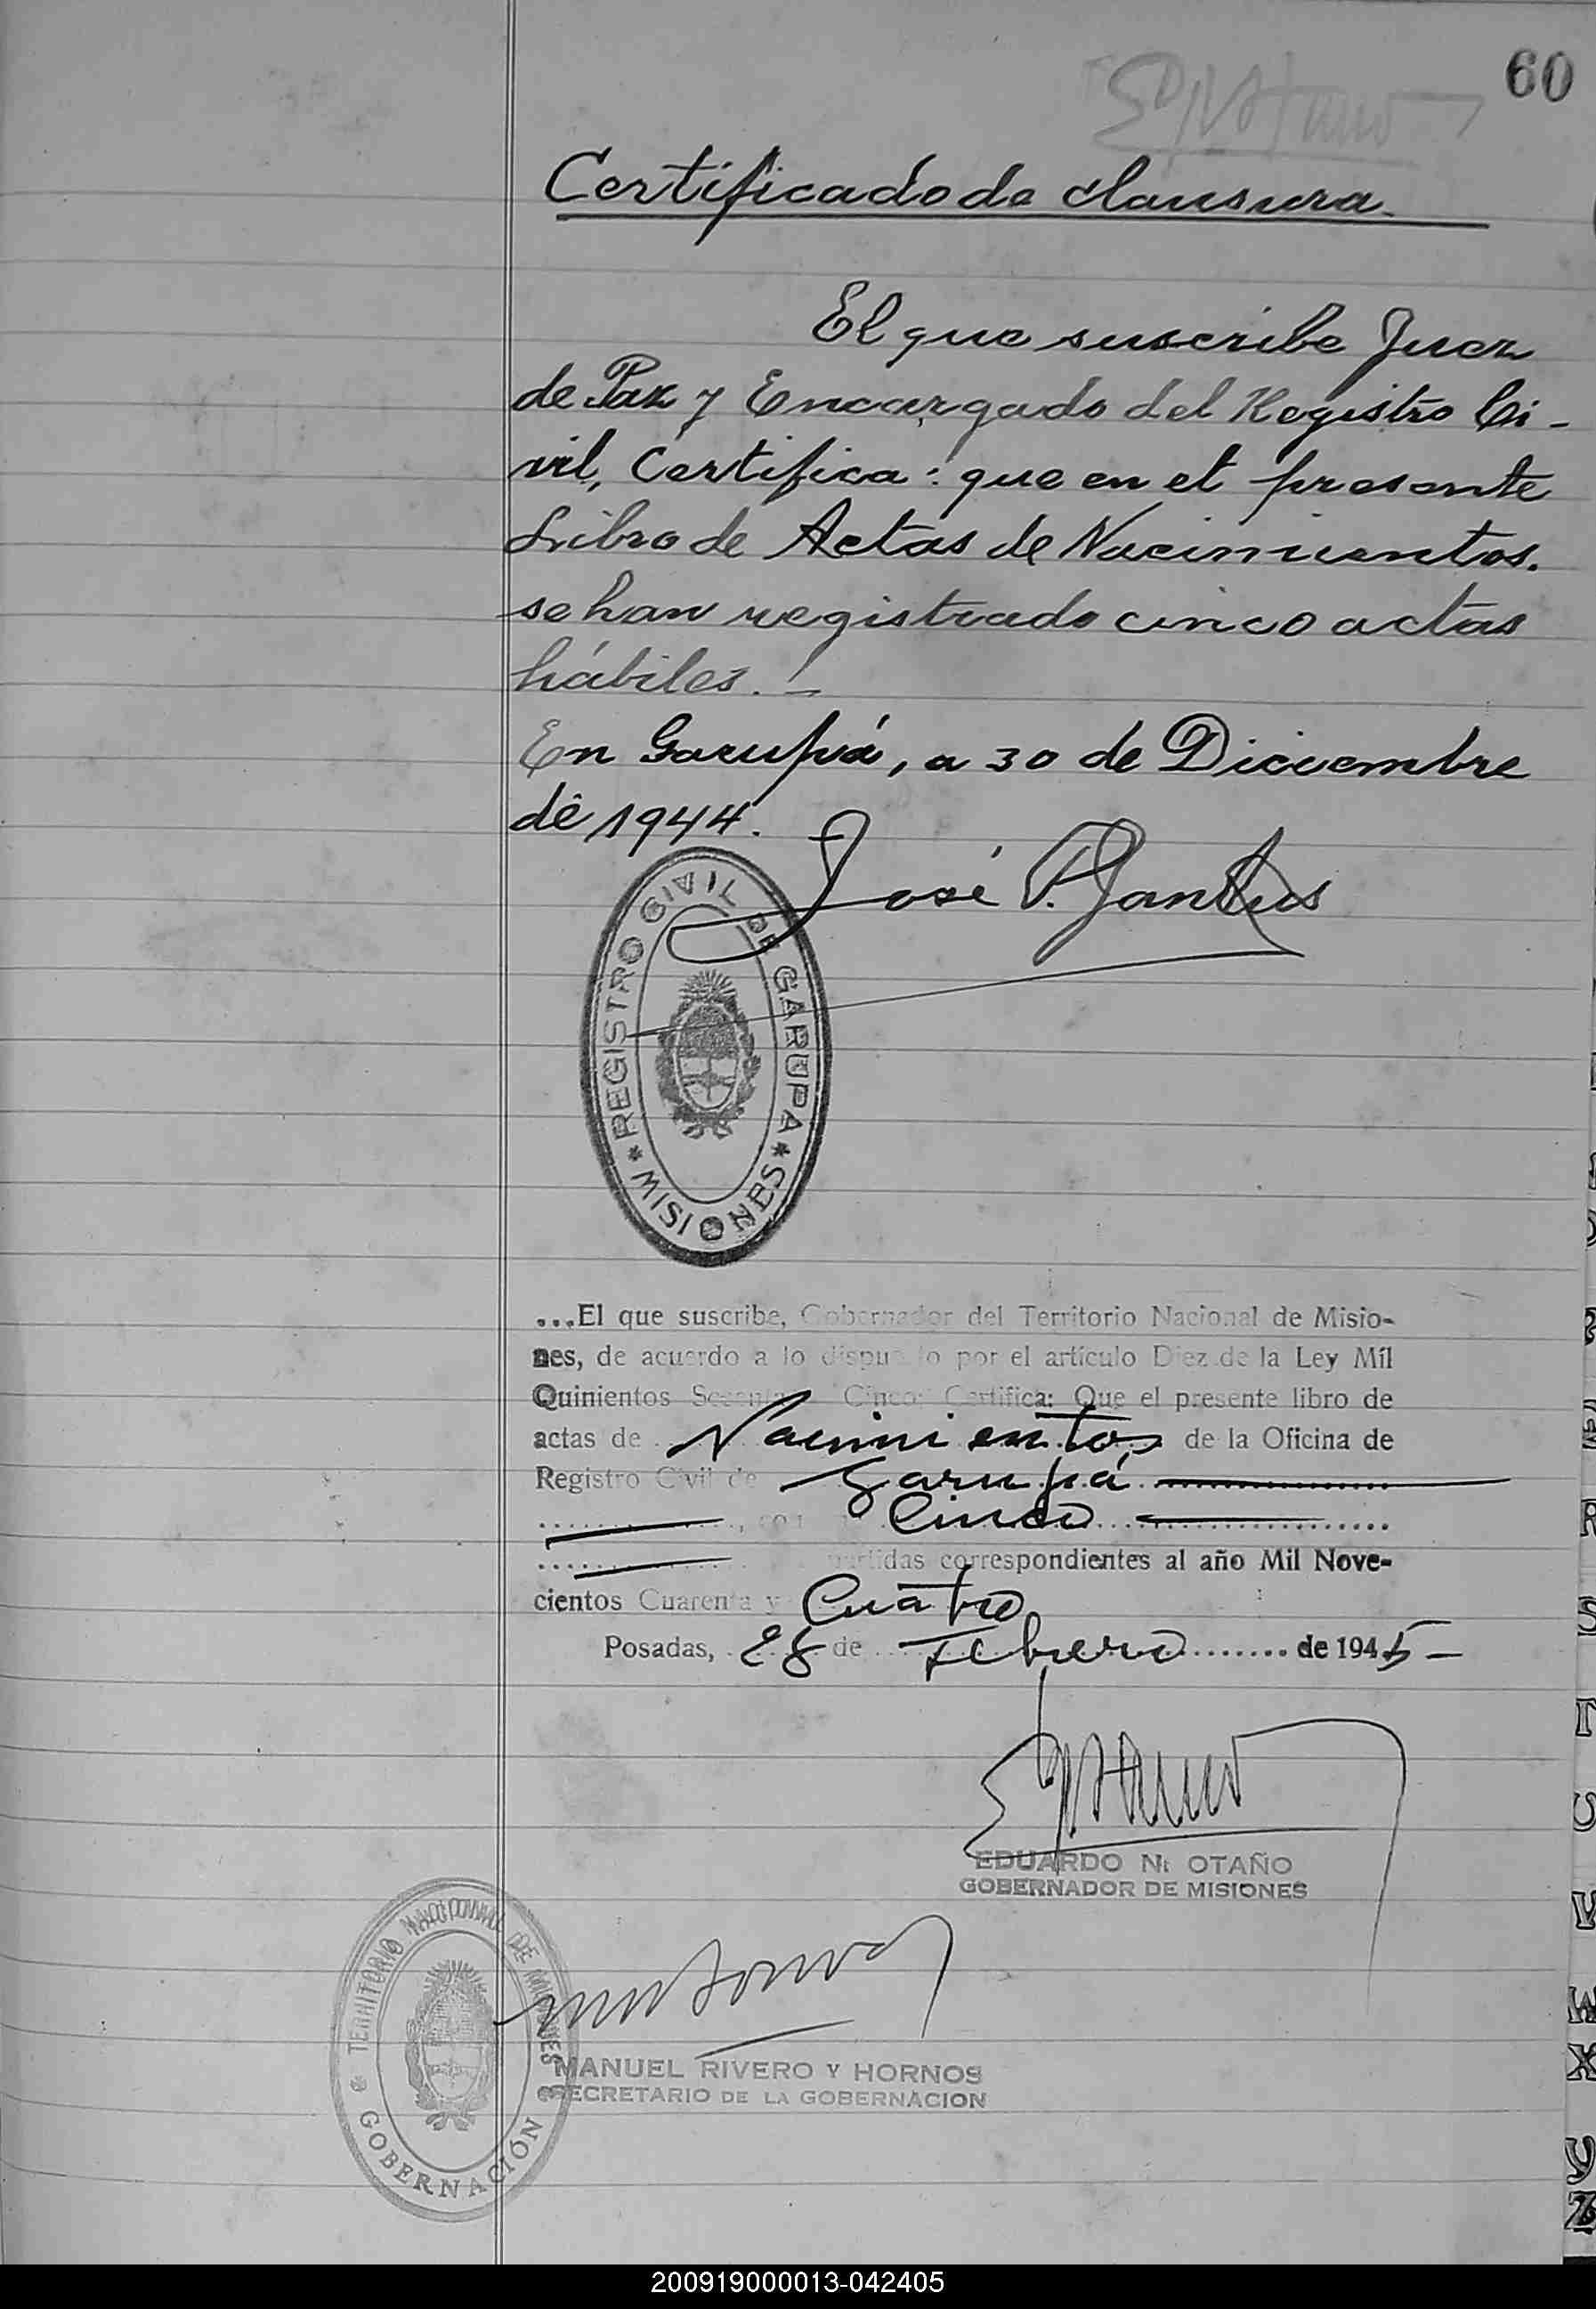 60
Certificado de clausura.
El que suscribe Juez
de Paz y Encargado del Registro Ci-
vil, Certifica: que en el presente
Libro de Actas de Nacimientos.
se han registrado cinco actas
hábiles. -
En Garupá, a 30 de Diciembre
de 1944.
José
REGISTRO CIVIL DE GARUPA * MISIONES *
...El que suscribe, Gobernador del Territorio Nacional de Misio-
nes, de acuerdo a lo dispuesto por el artículo Diez de la Ley Mil
Quinientos Sesenta Cinco: Certifica: Que el presente libro de
actas de Nacimientos de la Oficina de
Registro Civil de Garupá
, con Cinco
partidas correspondientes al año Mil Nove-
cientos Cuarenta y Cuatro
Posadas, 28 de Febrero de 1945-
EDUARDO N. OTAÑO
GOBERNADOR DE MISIONES
TERRITORIO NACIONAL DE MISIONES
GOBERNACIÓN
MANUEL RIVERO Y HORNOS
SECRETARIO DE LA GOBERNACION
R
S
T
V
W
X
Y
Z
200919000013-042405